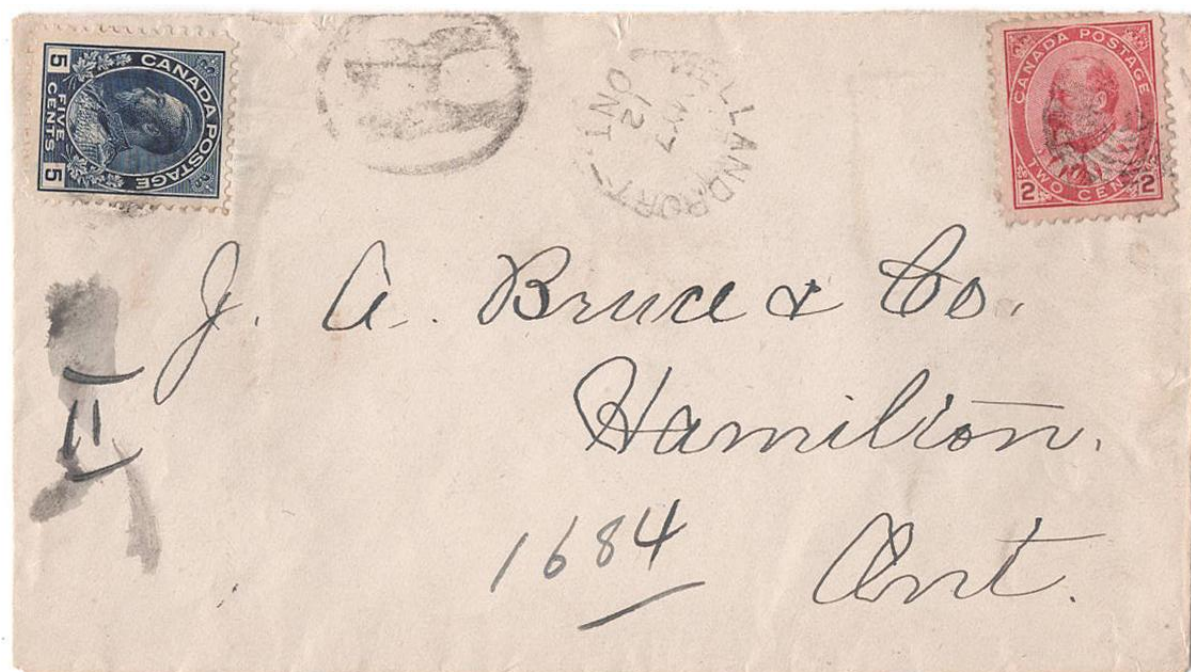 CANADA POSTAGE
5 FIVE CENTS 5
R
WELLANDPORT
MY 7
12
ONT
CANADA POSTAGE
2 TWO CENTS 2
J. A. Bruce & Co.
Hamilton.
Ont.
1684
11